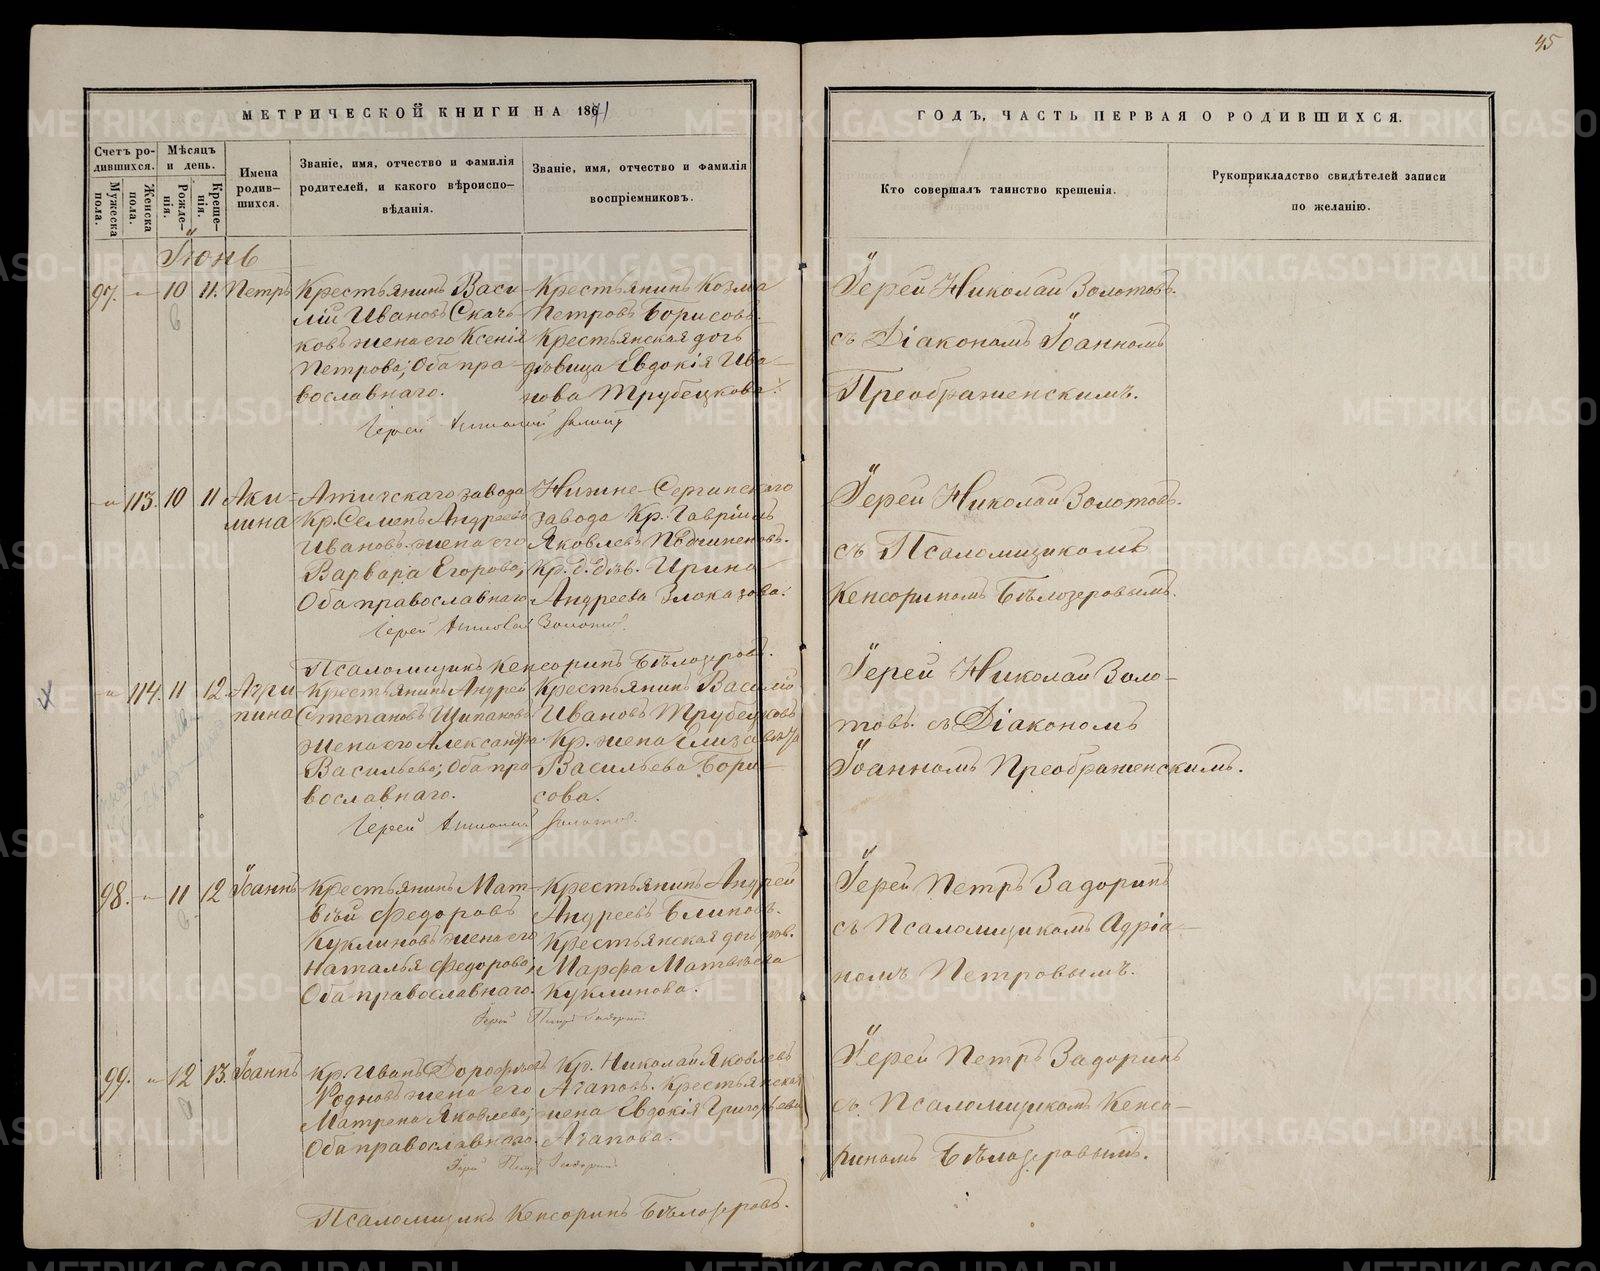 45
МЕТРИЧЕСКОЙ КНИГИ НА 1871
ГОДЪ, ЧАСТЬ ПЕРВАЯ О РОДИВШИХСЯ.
Счетъ ро-
дившихся.
Мужеска
пола.
Женска
пола.
Мѣсяцъ
и день.
Рожде-
нія.
Креще-
нія.
Имена
родив-
шихся.
Званіе, имя, отчество и фамилія
родителей, и какого вѣроиспо-
вѣданія.
Званіе, имя, отчество и фамилія
воспріемниковъ.
Кто совершалъ таинство крещенія.
Рукоприкладство свидѣтелей записи
по желанію.
Іюнь
97. 10 11. Петръ
Крестьянинъ Васи
лій Ивановъ Скачь
ковъ жена его Ксенія
Петрова; Оба пра-
вославнаго.
Крестьянинъ Козма
Петровъ Борисовъ.
Крестьянская дочь
дѣвица Евдокія Ива-
нова Трубецкова.
Іерей Николай Золотовъ.
съ Діакономъ Іоанномъ
Преображенскимъ.
Іерей
113. 10 11 Аки-
лина
Атигскаго завода
Кр. Семенъ Андреевъ
Ивановъ. жена его
Варвара Егорова;
Оба православнаго
Нижне-Сергинскаго
завода Кр. Гавріилъ
Яковлевъ
Кр. д. дѣв. Ирина
Андреева Злоказова.
Іерей Николай Золотовъ.
съ Псаломщикомъ
Кенсориномъ Бѣлозеровымъ.
Іерей Золотовъ.
Псаломщикъ Кенсоринъ Бѣлозеровъ.
114. 11 12. Агри
пина
Крестьянинъ Андрей
Степановъ Щипановъ
жена его Александра
Васильева; Оба пра
вославнаго.
Крестьянинъ Василій
Ивановъ Трубецковъ
Кр. жена Елизавета
Васильева Бори-
сова.
Іерей Николай Золо-
товъ. съ Діакономъ
Іоанномъ Преображенскимъ.
Іерей Золотовъ.
98. 11 12 Іоаннъ
Крестьянинъ Мат-
вѣй Федоровъ
Куклиновъ жена его
Наталья Федорова;
Оба православнаго.
Крестьянинъ Андрей
Андреевъ Блиновъ.
Крестьянская дочь дѣв.
Марфа Матвѣева
Куклинова.
Іерей Петръ Задоринъ
съ Псаломщикомъ Адріа-
номъ Петровымъ.
Іерей Петръ Задоринъ
99. 12 13. Іоаннъ
Кр. Иванъ Дорофѣевъ
жена его
Матрена Яковлева;
Оба православнаго.
Кр. Николай Яковлевъ
Агаповъ. Крестьянская
жена Евдокія Григорьева
Агапова.
Іерей Петръ Задоринъ
съ Псаломщикомъ Кенсо-
риномъ Бѣлозеровымъ.
Іерей Петръ Задоринъ
Псаломщикъ Кенсоринъ Бѣлозеровъ.
METRIKI.GASO-URAL.RU